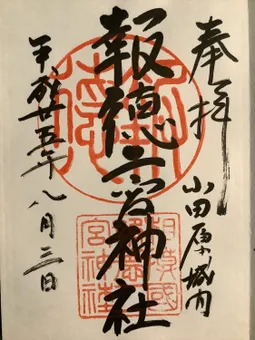 奉拝
小田原城内
報徳二宮神社
平成廿五年八月三日
報徳
相模國
報徳二宮神社